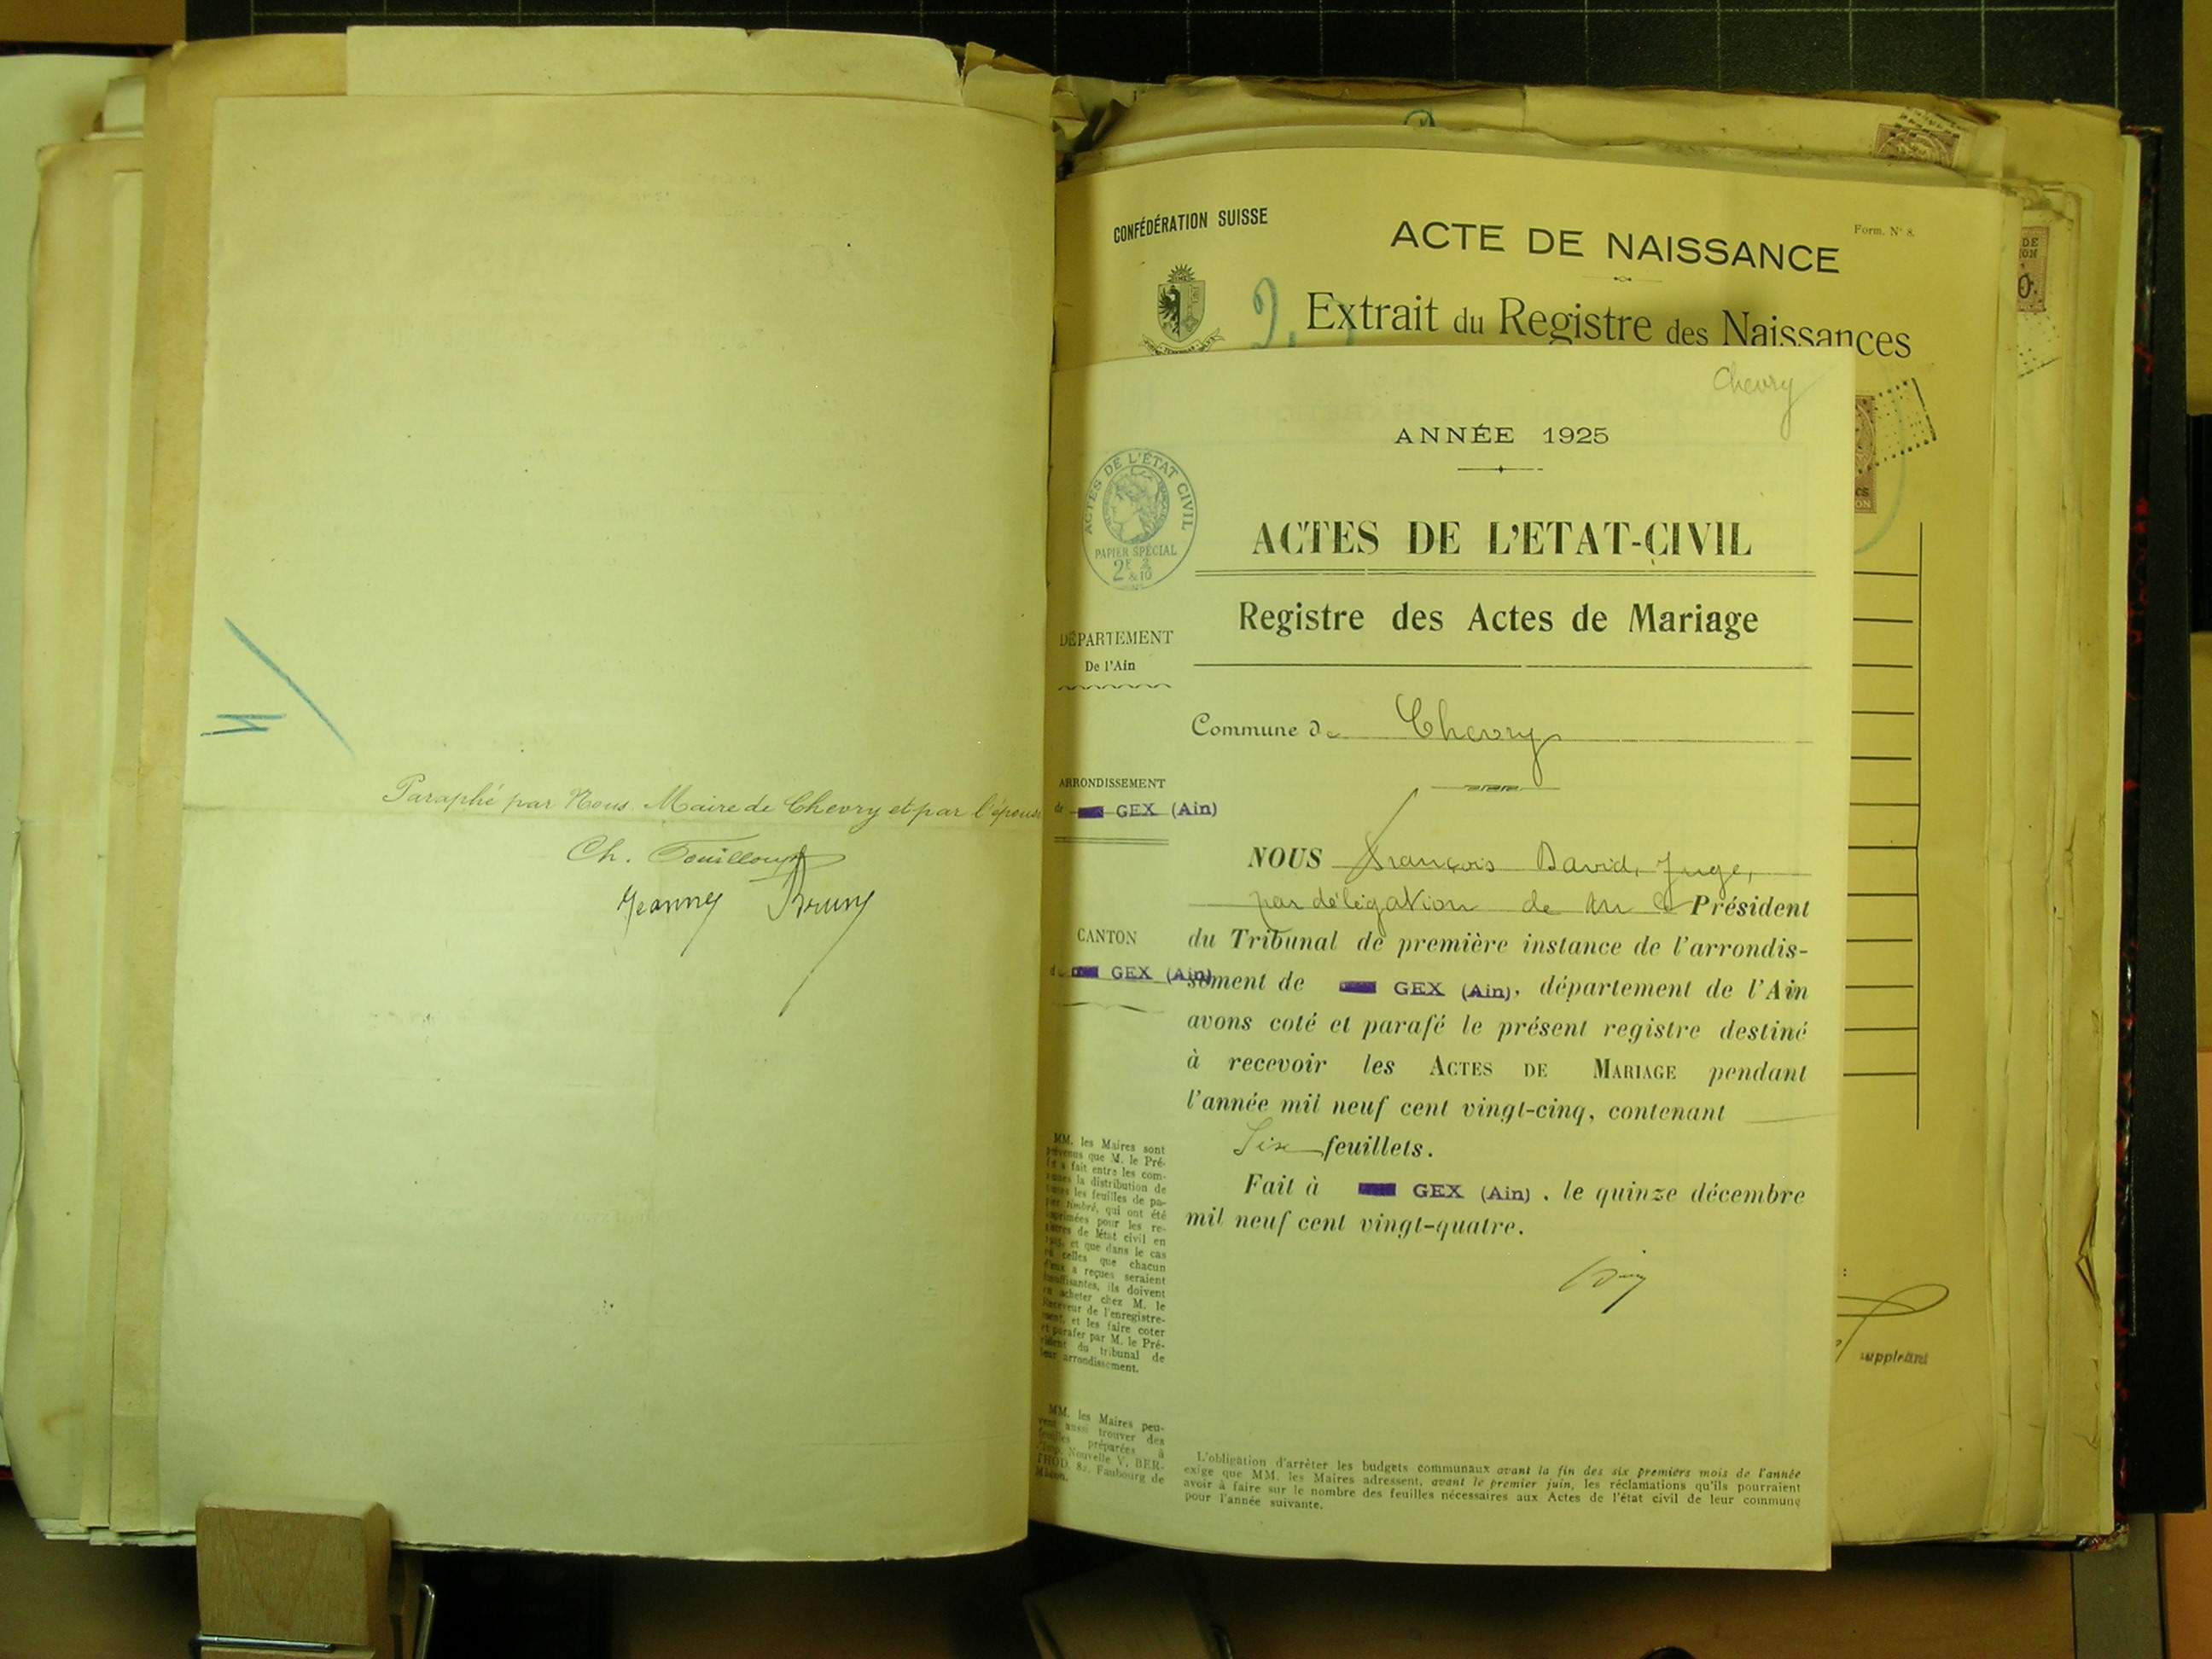 Paraphé par Nous Maire de Chevry et par l'épouse
Ch. Fouilloux
Jeanney Bruny
CONFÉDÉRATION SUISSE
ACTE DE NAISSANCE
Form. N° 8.
Extrait du Registre des Naissances
Chevry
ANNÉE 1925
ACTES DE L'ÉTAT CIVIL
PAPIER SPÉCIAL
2F
2
&10
ACTES DE L'ETAT-CIVIL
Registre des Actes de Mariage
DÉPARTEMENT
De l'Ain
Commune de Chevry
ARRONDISSEMENT
de GEX (Ain)
CANTON
de GEX (Ain)
NOUS François David, Juge,
par délégation de Mr le Président
du Tribunal de première instance de l'arrondis-
sement de GEX (Ain), département de l'Ain
avons coté et parafé le présent registre destiné
à recevoir les ACTES DE MARIAGE pendant
l'année mil neuf cent vingt-cinq, contenant
Six feuillets.
Fait à GEX (Ain), le quinze décembre
mil neuf cent vingt-quatre.
MM. les Maires sont
prévenus que M. le Pré-
fet a fait entre les com-
munes la distribution de
toutes les feuilles de pa-
pier timbré, qui ont été
imprimées pour les re-
gistres de l'état civil en
1925, et que dans le cas
où celles que chacun
d'eux a reçues seraient
insuffisantes, ils doivent
en acheter chez M. le
Receveur de l'enregistre-
ment, et les faire coter
et parafer par M. le Pré-
sident du tribunal de
leur arrondissement.
MM. les Maires peu-
vent aussi trouver des
feuilles préparées à
l'Imp. Nouvelle V. BER-
THOD, 82, Faubourg de
Mâcon.
L'obligation d'arrêter les budgets communaux avant la fin des six premiers mois de l'année
exige que MM. les Maires adressent, avant le premier juin, les réclamations qu'ils pourraient
avoir à faire sur le nombre des feuilles nécessaires aux Actes de l'état civil de leur commune
pour l'année suivante.
suppléant